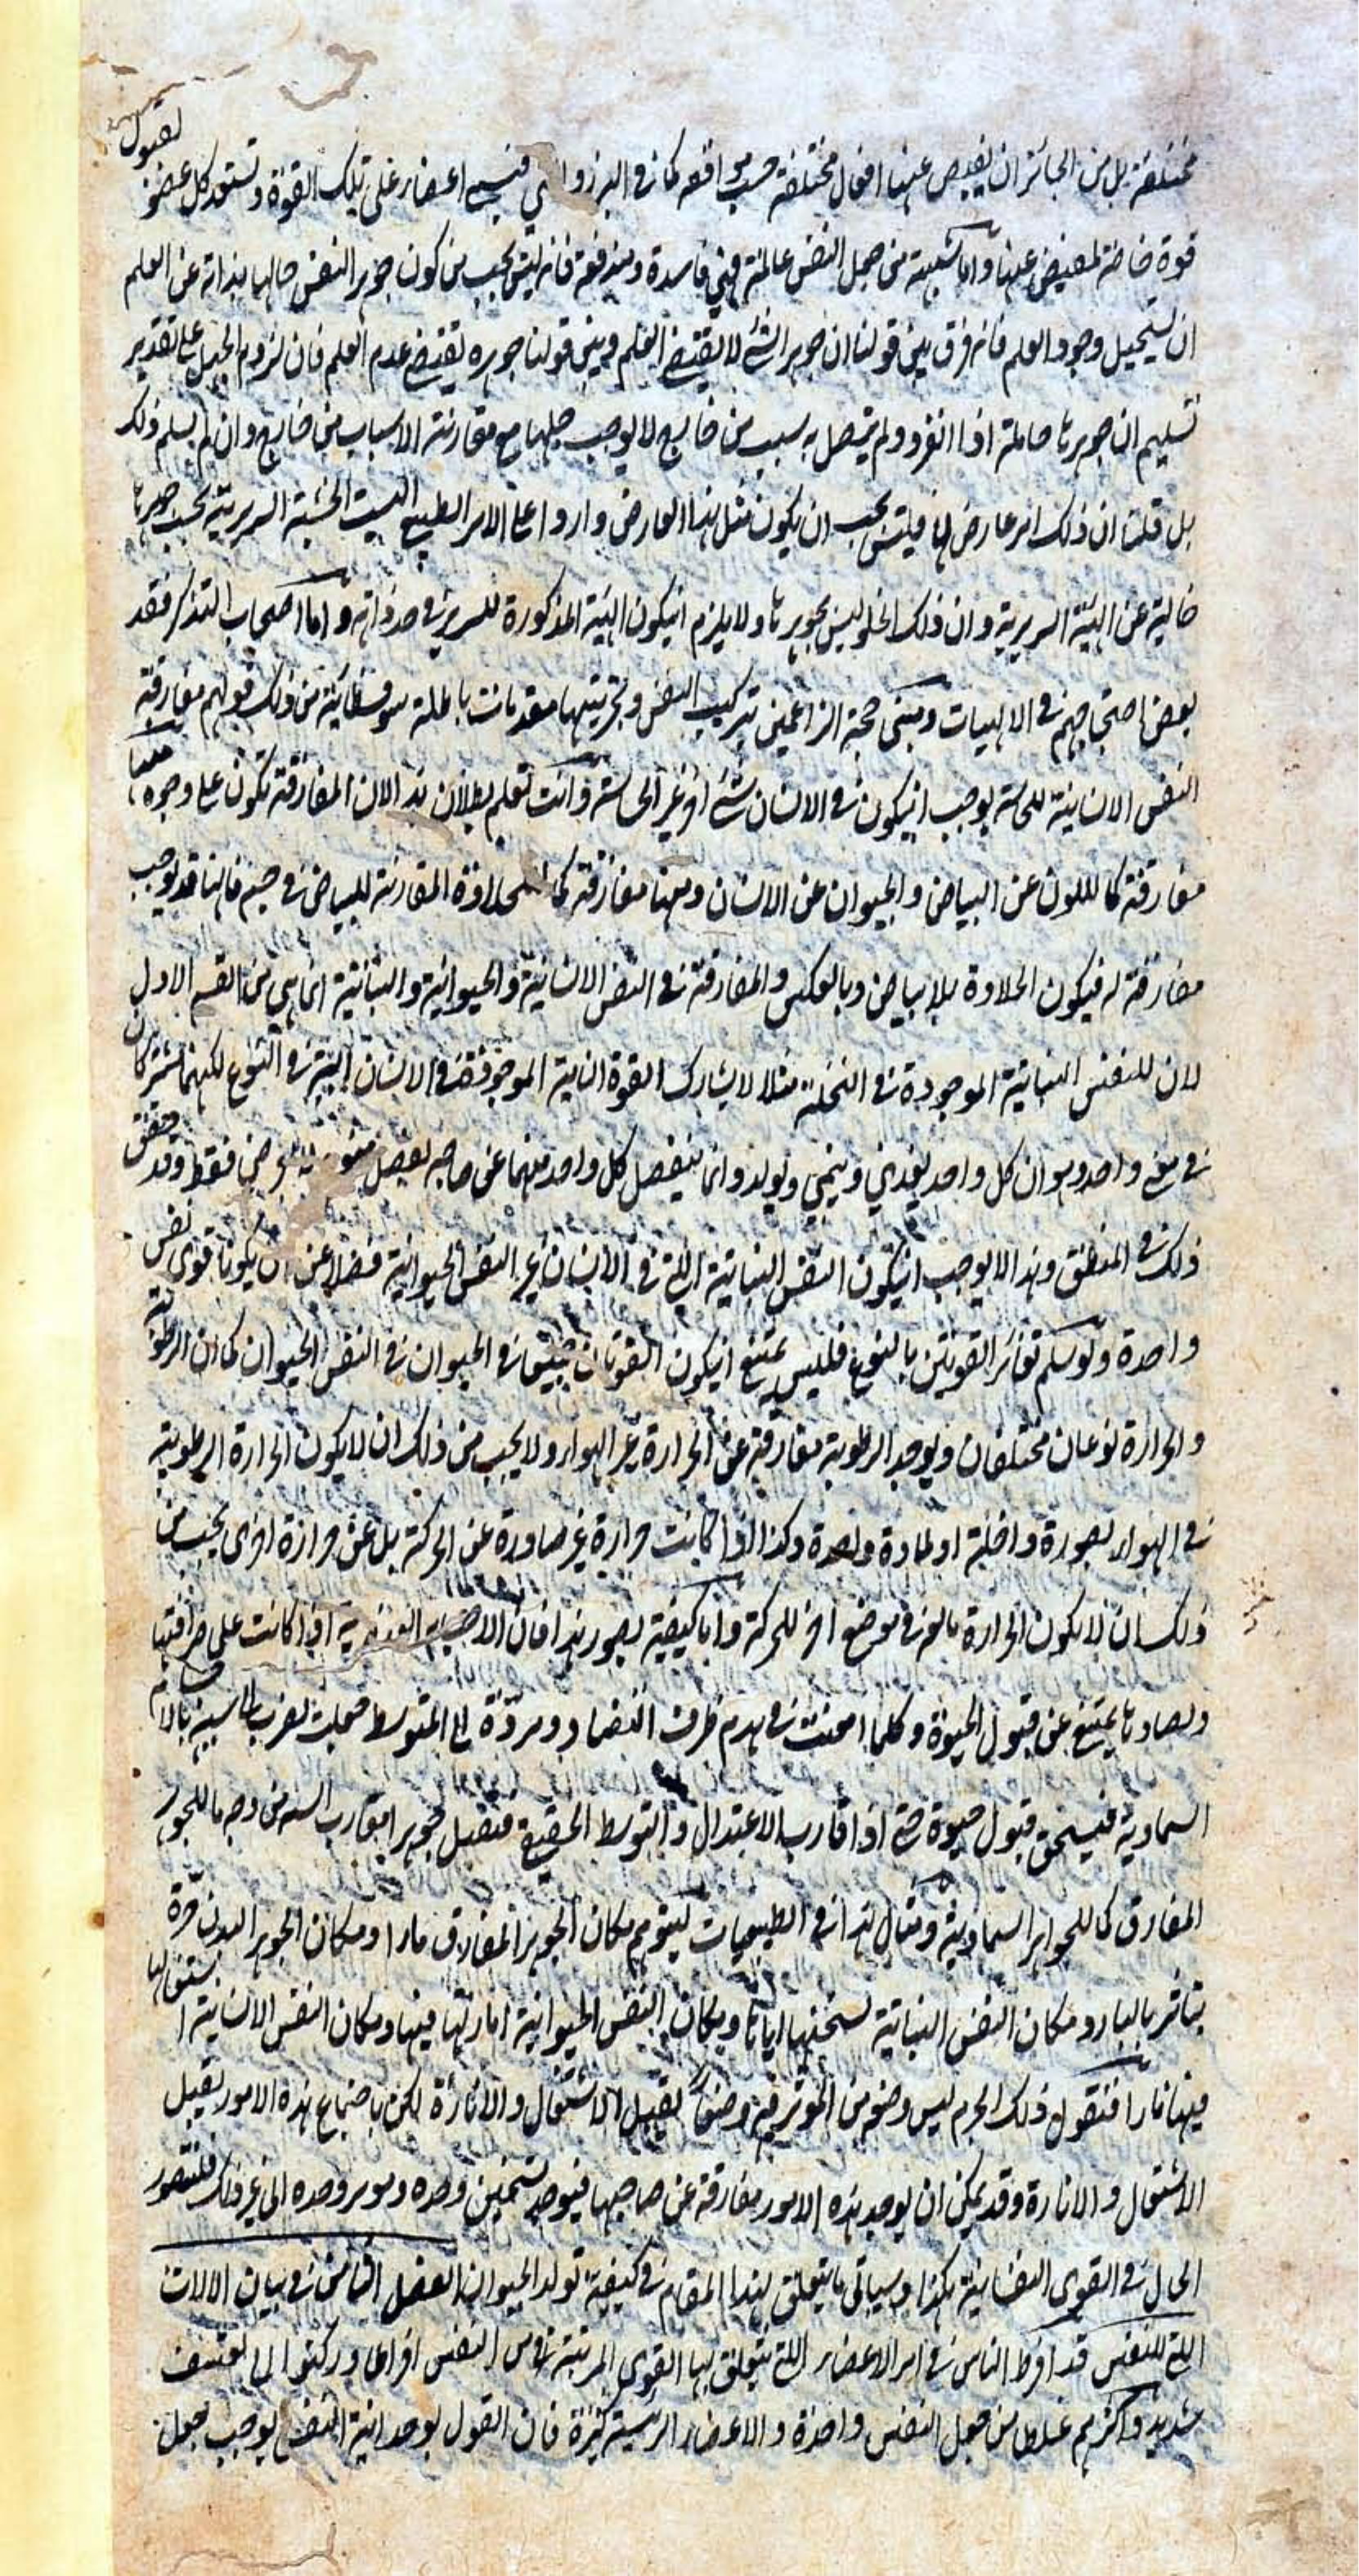 مختلفة بل من الجائز ان يفيض عنها افعال مختلفة حسب موافقه كما في البزر والمني فينبجس اعضاء على تلك القوة وتستعد كل عضو لقبول
قوة خاصة لتفيض عنها واما شبهة من جعل النفس عالمة فهي فاسدة ومندفعة فانه ليس يجب من كون جوهر النفس خاليا بذاته عن العلم
ان يستحيل وجود العلم فانه فرق بين قولنا ان جوهر الشئ لا يقتضي العلم وبين قولنا جوهره يقتضي عدم العلم فان لزوم الجهل على تقدير
تسليم ان جوهرها جاهلة اذا انفرد ولم يتصل به سبب من خارج لا يوجب جهلها مع مقارنة الاسباب من خارج وان لم يسلم ذلك
بل قلت ان ذلك امر عارض لها فليس يجب ان يكون مثل هذا العارض واردا على الامر الطبيعي اليست الخشبة السريرية بحسب جوهرها
خالية عن الهيئة السريرية وان ذلك الخلو ليس بجوهرها ولا يلزم انيكون الهيئة المذكورة للسرير في حد ذاته واما اصحاب التذكر فقد
نقض احتجاجهم في الالهيات ومبنى حجة الزاعمين تركيب النفس وتجزيتها مقدمات باطلة سوفسطائية من ذلك قولهم مفارقة
النفس الانسانية للحاسة يوجب انيكون في الانسان شئ اخر غير الحاسة وانت تعلم بطلان هذا لان المفارقة تكون على وجوه منها
مفارقة كاللون عن البياض والحيوان عن الانسان ومنها مفارقة كما للحلاوة المقارنة للبياض في جسم فانها قد يوجب
مفارقة له فيكون الحلاوة بلا بياض وبالعكس والمفارقة في النفس الانسانية والحيوانية والنباتية انما هي من القسم الاول
لان للنفس النباتية الموجودة في النخلة مثلا لا يشارك القوة النامية الموجودة في الانسان البتة في النوع لكنهما تشتركان
في معنى واحد وهو ان كل واحد يغذي وينمي ويولد وانما ينفصل كل واحد منهما عن صاحبه بفصل مقوم لا بعرضي فقط وقد حقق
ذلك في المنطق وهذا لا يوجب انيكون النفس النباتية التي في الانسان غير النفس الحيوانية فضلا عن ان يكونا قوى نفس
واحدة ولو سلم تغاير القوتين بالنوع فليس يمتنع انيكون القوتان في الحيوان في النفس الحيوان كما ان الرطوبة
والحرارة نوعان مختلفان ويوجد الرطوبة مفارقة عن الحرارة غير الهواء ولا يجب من ذلك ان لا يكون الحرارة الرطوبة
في الهواء بصورة واحدة او لمادة واحدة وكذا اذا كانت حرارة غير صادرة عن الحركة بل عن حرارة اخرى يجب من
ذلك ان لا يكون الحرارة تابعة في موضع اخر للحركة واما كيفية تصور هذا فان الاجسام العنصرية اذا كانت على صرافتها
وتضادها يمتنع عن قبول الحيوة وكلما امعنت في هدم طرف التضاد ورده الى المتوسط جعلت تضرب الى شبه بالاجسام
السماوية فيستحق قبول حيوة حتى اذا قارب الاعتدال والتوسط الحقيقي فتقبل جوهرا مقارب الشبه من وجه ما للجوهر
المفارق كما للجواهر السماوية ومثال هذا في الطبيعيات ليتوهم مكان الجوهر المفارق نارا ومكان الجوهر البدن جرة
يتاثر بالنار ومكان النفس النباتية تسخينها اياها ومكان النفس الحيوانية انارتها فيها ومكان النفس الانسانية اشتغالها
فيها نارا فنقول ذلك الجرم ليس وضعه من المؤثر فيه وضعا يقبل الاشتعال والانارة لكن باجتماع هذه الامور يقبل
الاشتعال والانارة وقد يمكن ان يوجد هذه الامور مفارقة عن صاحبها فيوجد تسخين وحده وهو وحده الى غير ذلك فليتصور
الحال في القوى النفسانية هكذا وسياتي ما يتعلق بهذا المقام في كيفية تولد الحيوان الفصل الثامن في بيان الالات
التي للنفس قد افرط الناس في امر الاعضاء التي يتعلق بها القوى المرتبة من النفس افراطا وركبوا الى تعسف
شديد واكثرهم غلطا من جعل النفس واحدة والاعضاء الرئيسية كثيرة فان القول بوحدانية النفس يوجب جعل